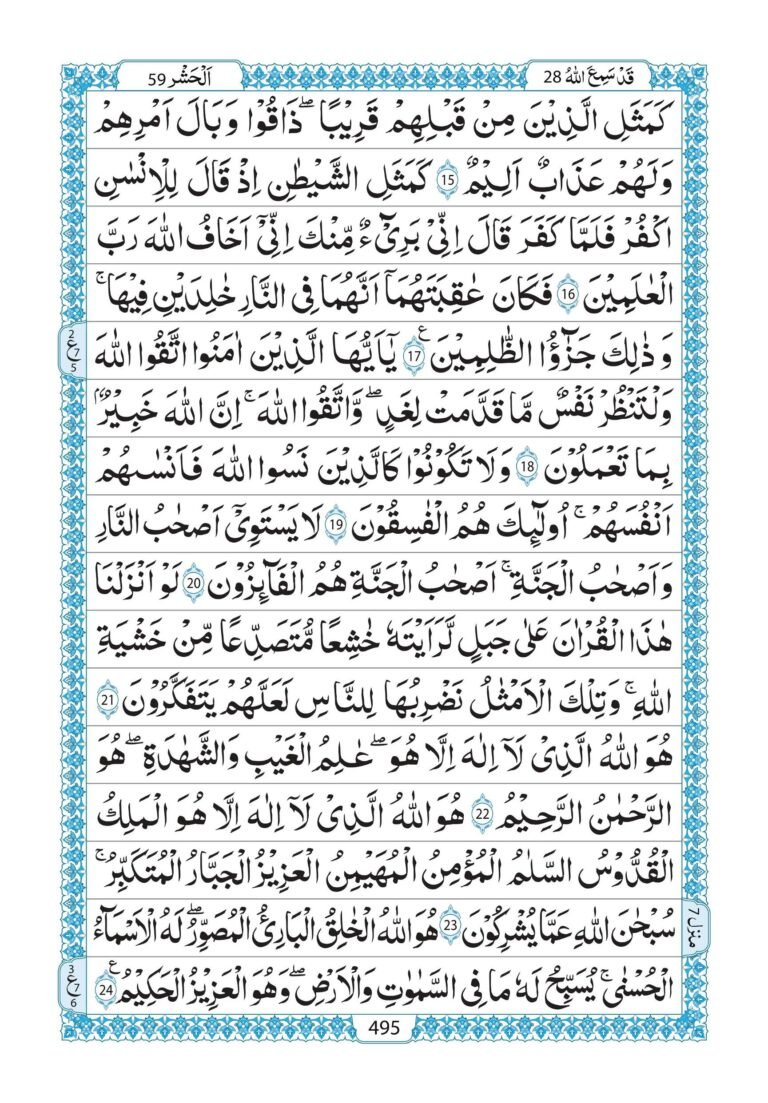 اَلْحَشْر 59
قَدْ سَمِعَ اللّٰهُ 28
كَمَثَلِ الَّذِيْنَ مِنْ قَبْلِهِمْ قَرِيْبًا ۖ ذَاقُوْا وَبَالَ اَمْرِهِمْ
وَلَهُمْ عَذَابٌ اَلِيْمٌ 15 كَمَثَلِ الشَّيْطٰنِ اِذْ قَالَ لِلْاِنْسٰنِ
اكْفُرْ فَلَمَّا كَفَرَ قَالَ اِنِّيْ بَرِيْٓءٌ مِّنْكَ اِنِّيْٓ اَخَافُ اللّٰهَ رَبَّ
الْعٰلَمِيْنَ 16 فَكَانَ عٰقِبَتَهُمَآ اَنَّهُمَا فِى النَّارِ خٰلِدَيْنِ فِيْهَا ۚ
وَ ذٰلِكَ جَزٰٓؤُا الظّٰلِمِيْنَ ع 17 يٰٓاَيُّهَا الَّذِيْنَ اٰمَنُوا اتَّقُوا اللّٰهَ
2 ع 7 5
وَلْتَنْظُرْ نَفْسٌ مَّا قَدَّمَتْ لِغَدٍ ۖ وَّاتَّقُوا اللّٰهَ ۚ اِنَّ اللّٰهَ خَبِيْرٌۢ
بِمَا تَعْمَلُوْنَ 18 وَلَا تَكُوْنُوْا كَالَّذِيْنَ نَسُوا اللّٰهَ فَاَنْسٰىهُمْ
اَنْفُسَهُمْ ۚ اُولٰٓئِكَ هُمُ الْفٰسِقُوْنَ 19 لَا يَسْتَوِيْٓ اَصْحٰبُ النَّارِ
وَاَصْحٰبُ الْجَنَّةِ ۚ اَصْحٰبُ الْجَنَّةِ هُمُ الْفَآئِزُوْنَ 20 لَوْ اَنْزَلْنَا
هٰذَا الْقُرْاٰنَ عَلٰى جَبَلٍ لَّرَاَيْتَهٗ خٰشِعًا مُّتَصَدِّعًا مِّنْ خَشْيَةِ
اللّٰهِ ۚ وَتِلْكَ الْاَمْثٰلُ نَضْرِبُهَا لِلنَّاسِ لَعَلَّهُمْ يَتَفَكَّرُوْنَ 21
هُوَ اللّٰهُ الَّذِيْ لَآ اِلٰهَ اِلَّا هُوَ ۖ عٰلِمُ الْغَيْبِ وَالشَّهٰدَةِ ۖ هُوَ
الرَّحْمٰنُ الرَّحِيْمُ 22 هُوَ اللّٰهُ الَّذِيْ لَآ اِلٰهَ اِلَّا هُوَ الْمَلِكُ
الْقُدُّوْسُ السَّلٰمُ الْمُؤْمِنُ الْمُهَيْمِنُ الْعَزِيْزُ الْجَبَّارُ الْمُتَكَبِّرُ ۚ
سُبْحٰنَ اللّٰهِ عَمَّا يُشْرِكُوْنَ 23 هُوَ اللّٰهُ الْخٰلِقُ الْبَارِئُ الْمُصَوِّرُ ۖ لَهُ الْاَسْمَآءُ
منزل 7
الْحُسْنٰى ۚ يُسَبِّحُ لَهٗ مَا فِى السَّمٰوٰتِ وَالْاَرْضِ ۖ وَهُوَ الْعَزِيْزُ الْحَكِيْمُ ع 24
3 ع 7 6
495